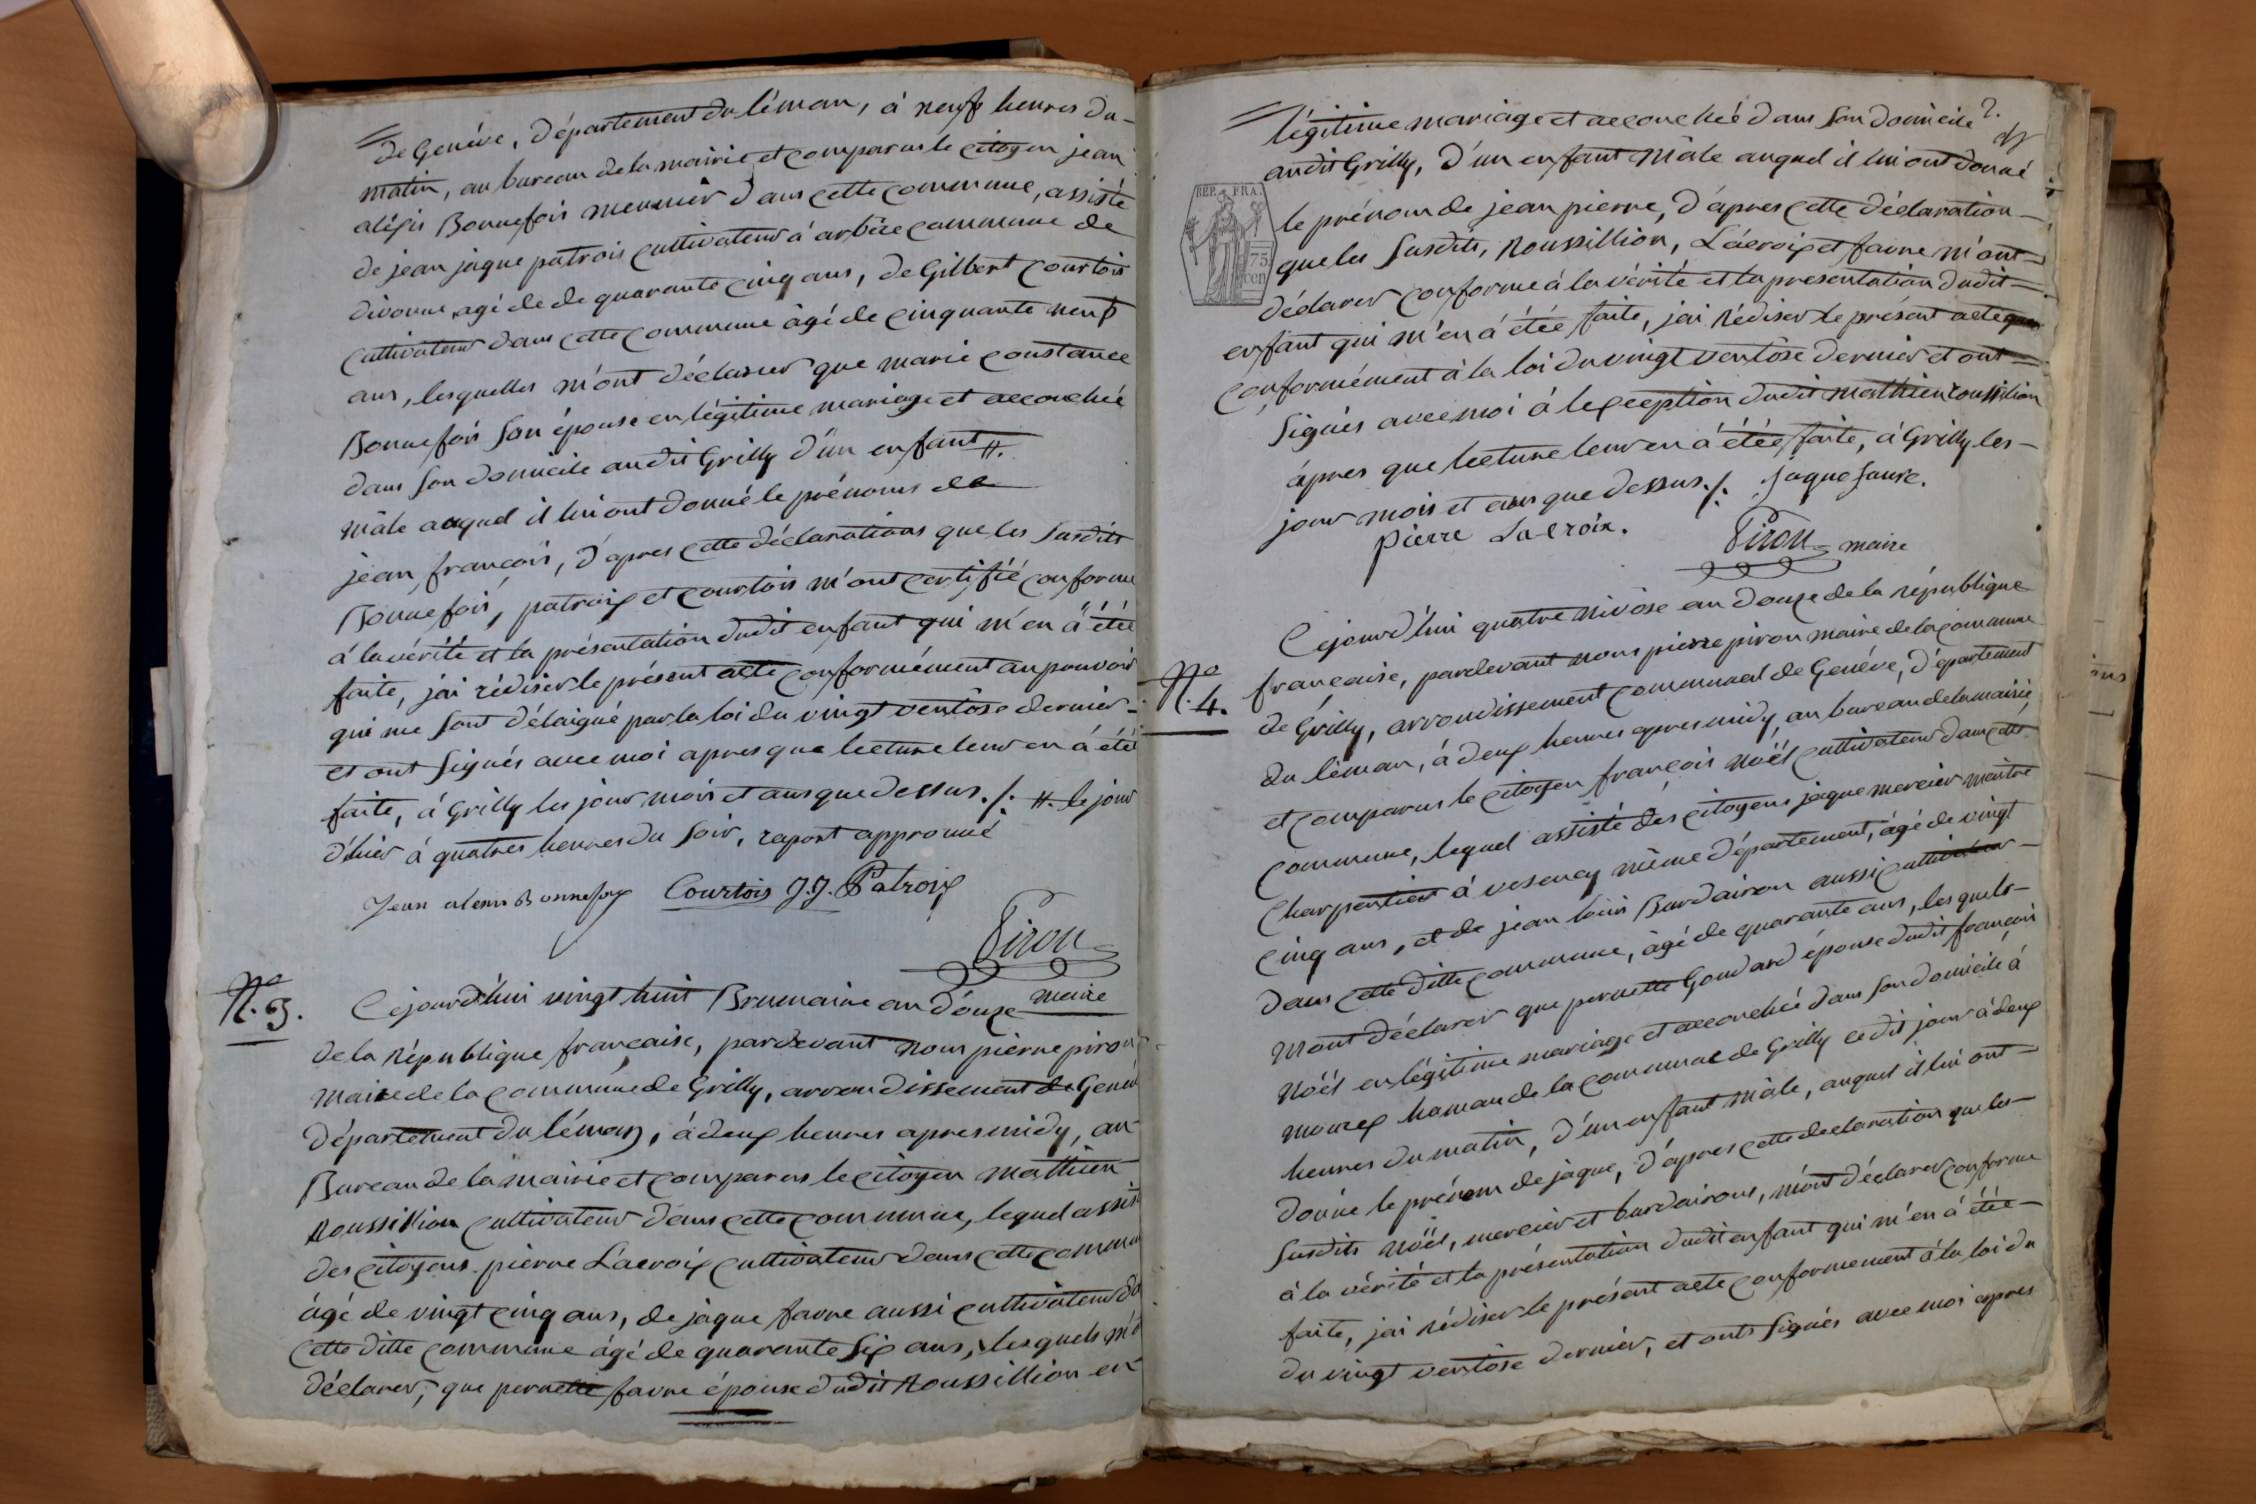 de Genéve, Département du léman, à neuf heures du
matin, au bureau de la mairie et comparus le citoyen jean
aléxis Bonnefois meunier dans cette commune, assisté
de jean jaque patrois cultivateur à arbére commune de
divonne agé de de quarante cinq ans, de Gilbert Courtois
cultivateur dans cette commune âgé de cinquante neuf
ans, lesquelles m'ont déclarer que marie constance
Bonnefois son épouse en légitime mariage et accouchée
dans son domicile audit Grilly d'un enfant #.
mâle auquel il lui ont donné le prénoms de
jean françois, d'apres cette déclarations que les susdits
Bonnefois, patroix et courtois m'ont certifié conforme
à la vérité et la présentation dudit enfant qui m'en à été
faite, j'ai rédiser le présent acte conformément au pouvoir
qui me sont délaigué par la loi du vingt ventôse dernier
et ont signés avec moi apres que lecture leur en à été
faite, à Grilly les jour mois et ans que dessus ./. #. le jour
d'hier à quatres heures du soir, raport approuvé
Jean alexis Bonnefoix Courtois J.J. Patroix
Piron
maire
No. 3.
Cejourd'hui vingt huit Brumaire an douze
de la République française, pardevant nous pierre piron
maire de la commune de Grilly, arrondissement de Genev
département du léman, à deux heures apres midy, au
Bureau de la mairie et comparus le citoyen mathieu
Roussillion cultivateur dans cette commune, lequel assist
des citoyens pierre Lacroix cultivateur dans cette commu
âgé de vingt cinq ans, de jaque favre aussi cultivateur d
cette ditte commune âgé de quarante six ans, lesquels m'o
déclarer, que pernette favre épouse dudit Roussillion en
2.
légitime mariage et accouchée dans son domicile
audit Grilly, d'un enfant mâle auquel il lui ont donné
REP. FRA.
75
cen
le prénom de jean pierre, d'apres cette déclaration
que les susdits, Roussillion, Lacroix et favre m'ont
déclarer conforme à la vérité et la presentation dudit
enfant qui m'en à étée faite, j'ai rédiser le présent acte
conformément à la loi du vingt ventôse dernier et ont
signés avec moi à lexception dudit mathieu roussillion
àpres que lecture leur en à étée faite, à Grilly les
jour mois et ans que dessus ./. jaque favre.
pierre Lacroix.
Piron maire
No. 4.
Cejourd'hui quatre nivôse an douze de la république
française, pardevant nous pierre piron maire de la commune
de Grilly, arrondissement communal de Genéve, département
du léman, à deux heures apres midy, au bureau de la mairie,
et comparus le citoyen françois Noël cultivateur dans cette
commune, lequel assisté des citoyens jaque mercier maitre
charpentier à vesency même département, âgé de vingt
cinq ans, et de jean louis Burdairon aussi cultivateur
dans cette ditte commune, âgé de quarante ans, lesquels
mont déclarer que pernette Goudard épouse dudit françois
Noël en légitime mariage et accouchée dans son domicile à
mourex hamau de la communae de Grilly ce dit jour à deux
heures du matin, d'un enfant mâle, auquel il lui ont
donné le prénom de jaque, d'apres cette declaration que les
susdits Noël, mercier et burdairont, m'ont déclarer conforme
à la vérité et la présentation dudit enfant qui m'en à étée
faite, j'ai rédiser le présent acte conformement à la loi du
du vingt ventôse dernier, et onts signés avec moi apres